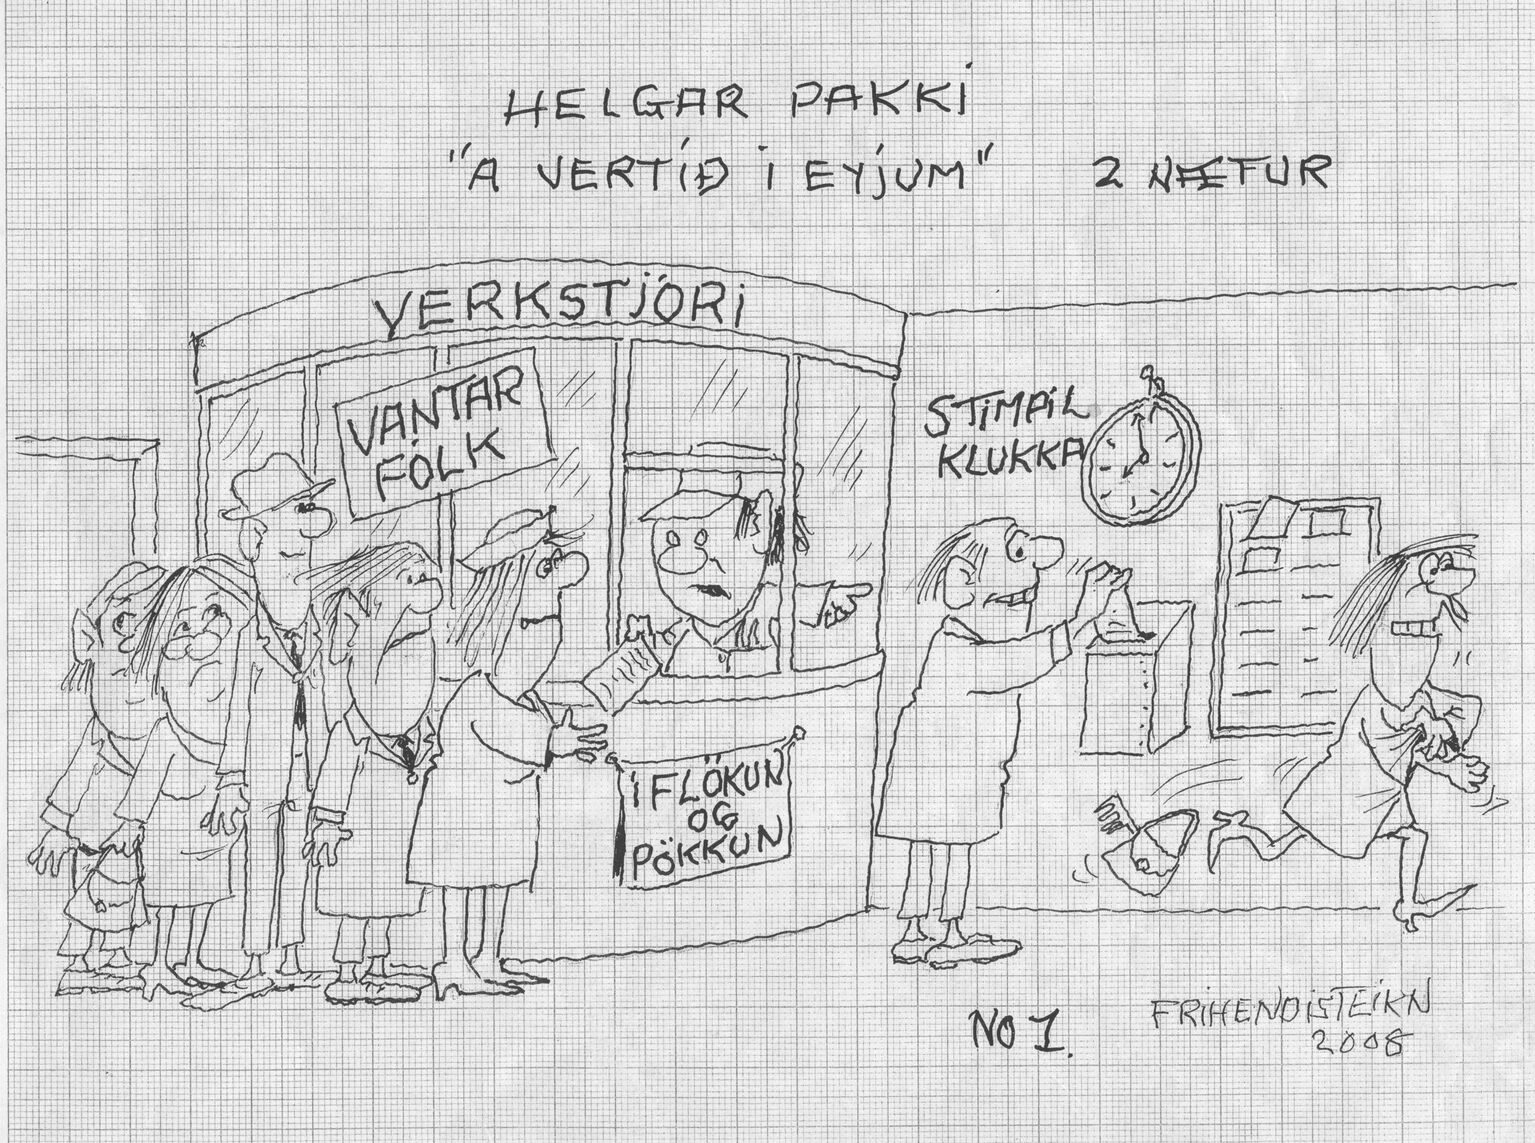 HELGAR PAKKI
"A VERTÍÐ I EYJUM" 2 NÆTUR
VERKSTJÓRI
VANTAR
FÓLK
STIMPIL
KLUKKA
Í FLÖKUN
OG
PÖKKUN
NO 1.
FRIHENDISTEIKN
2008